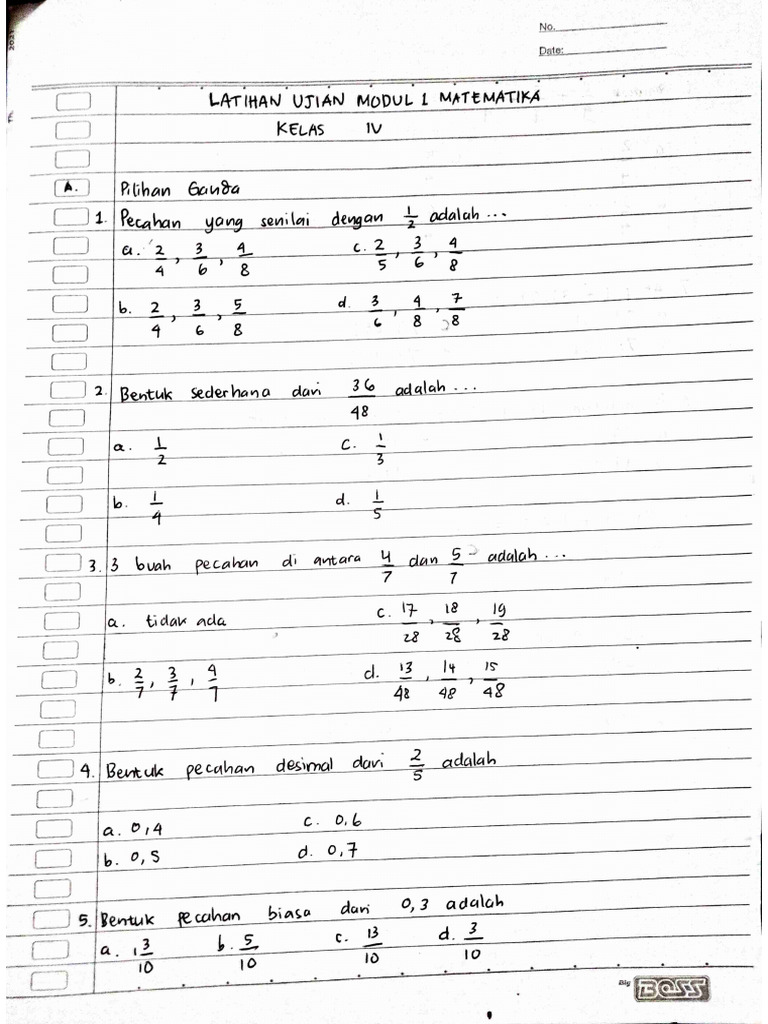 No.
Date:
LATIHAN UJIAN MODUL 1 MATEMATIKA
KELAS IV
A. Pilihan Ganda
1. Pecahan yang senilai dengan 1/2 adalah ...
a. 2/4, 3/6, 4/8 c. 2/5, 3/6, 4/8
b. 2/4, 3/6, 5/8 d. 3/6, 4/8, 7/8
2. Bentuk sederhana dari 36/48 adalah ...
a. 1/2 c. 1/3
b. 1/4 d. 1/5
3. 3 buah pecahan di antara 4/7 dan 5/7 adalah ...
a. tidak ada c. 17/28, 18/28, 19/28
b. 2/7, 3/7, 4/7 d. 13/48, 14/48, 15/48
4. Bentuk pecahan desimal dari 2/5 adalah
a. 0,4 c. 0,6
b. 0,5 d. 0,7
5. Bentuk pecahan biasa dari 0,3 adalah
a. 1 3/10 b. 5/10 c. 13/10 d. 3/10
Big BOSS